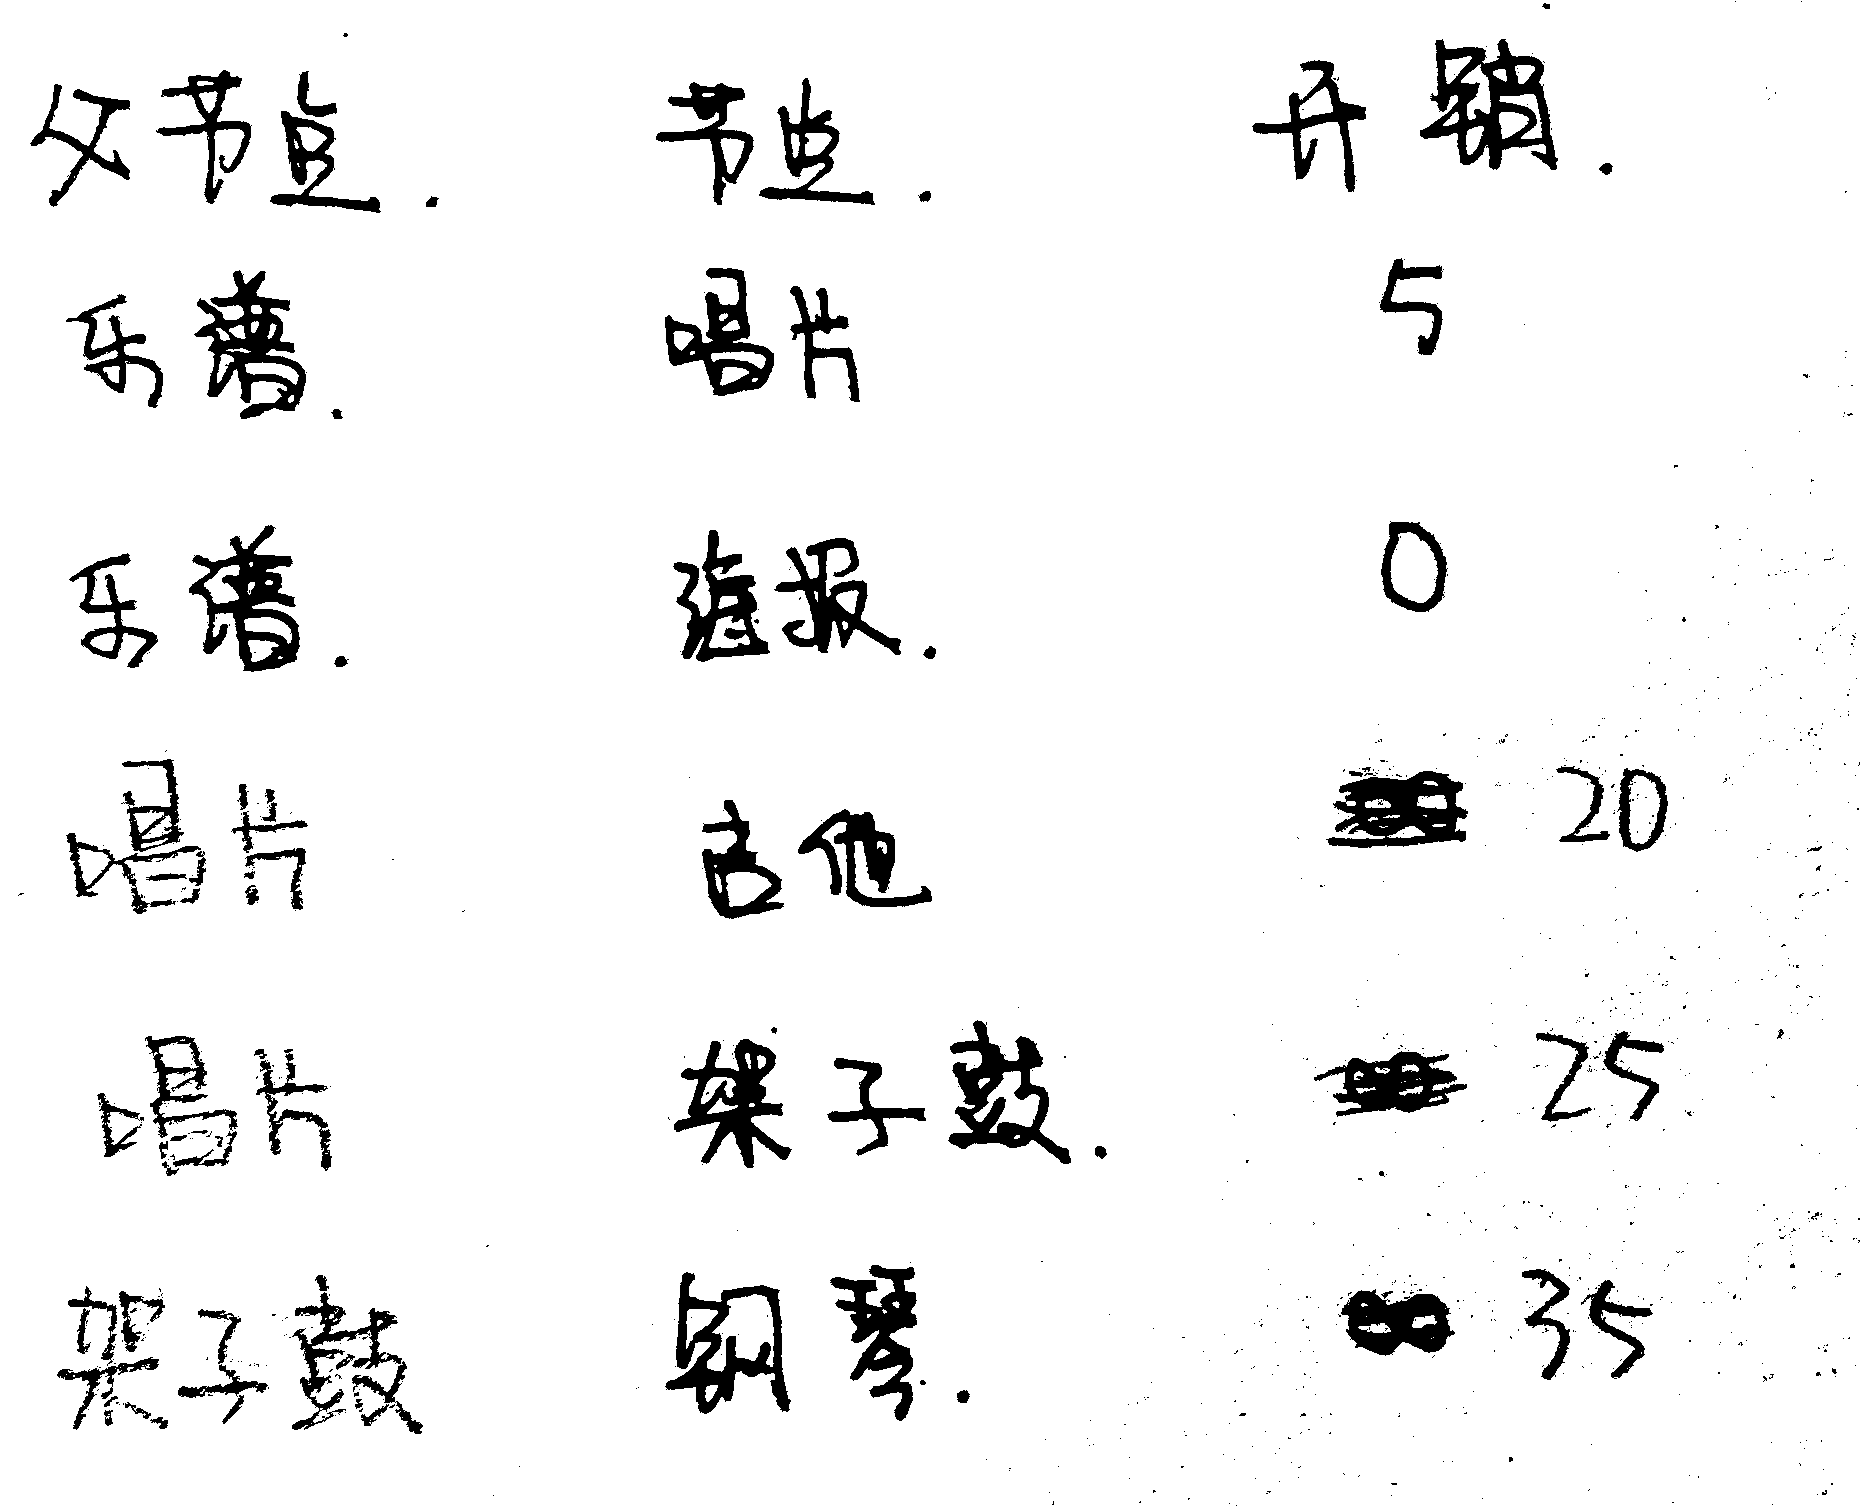 父节点. 节点. 开销.
乐谱. 唱片 5
乐谱. 海报. 0
唱片 吉他 20
唱片 架子鼓. 25
架子鼓 钢琴. 35